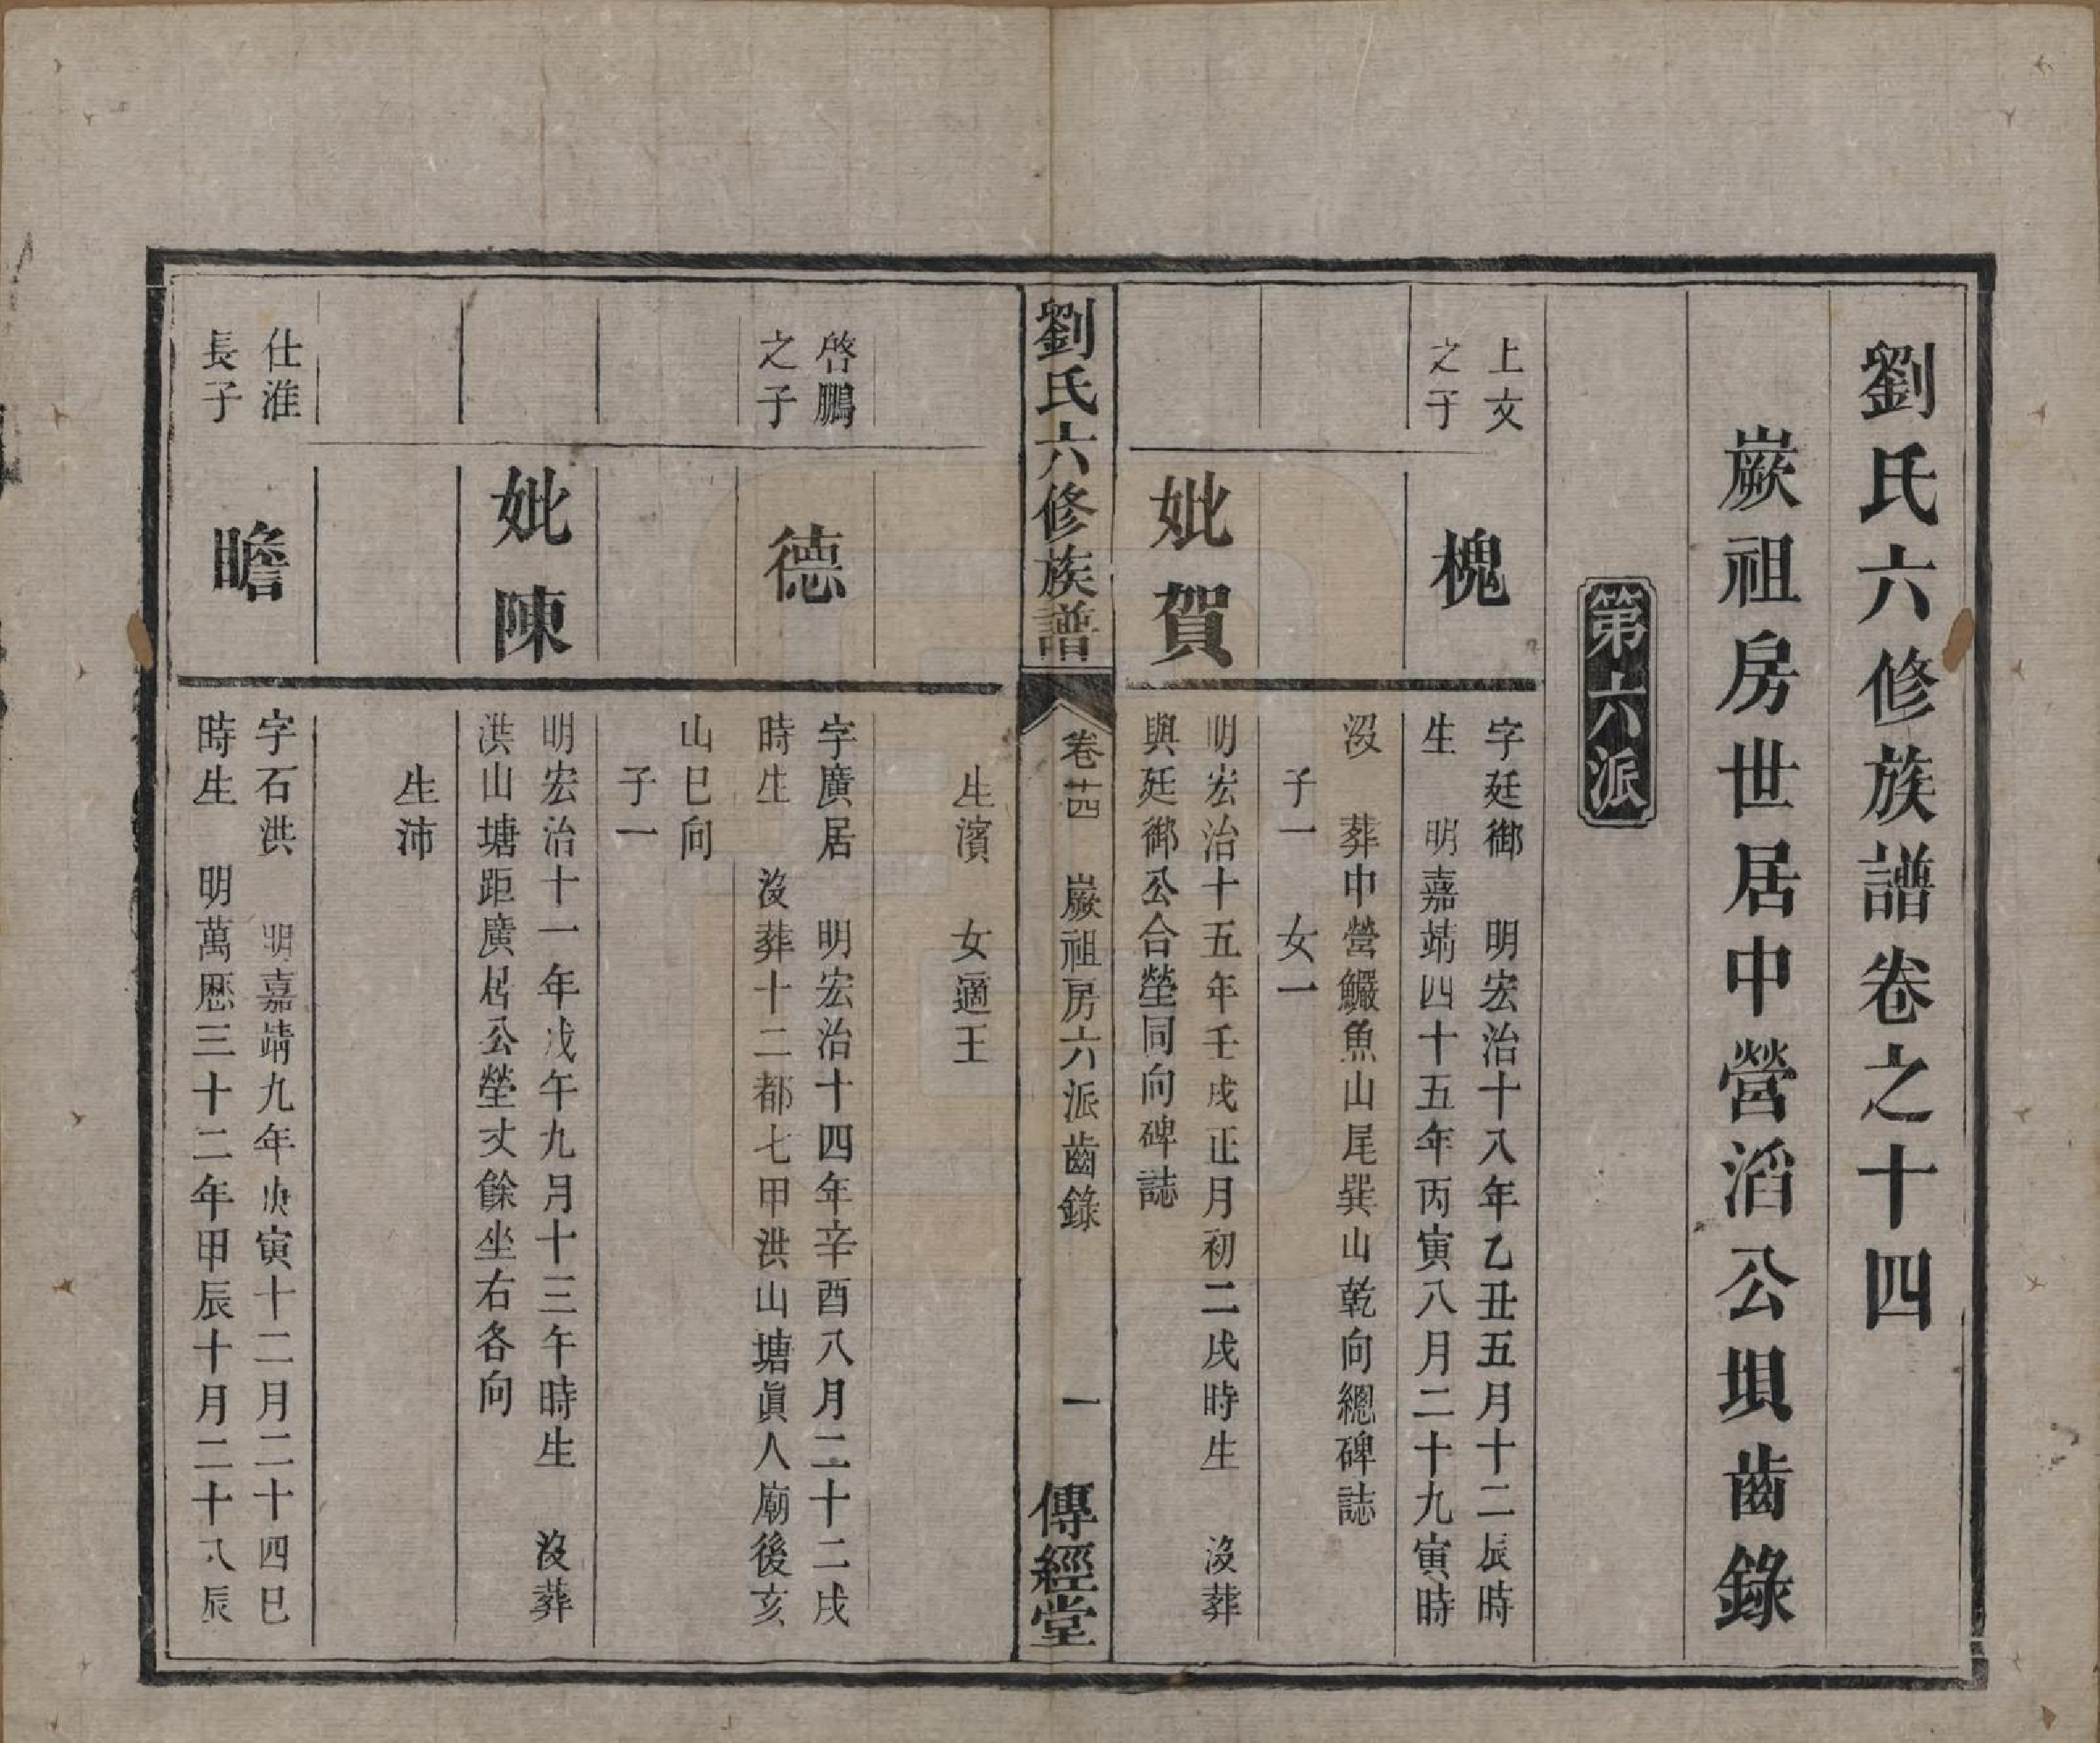 劉氏六修族譜卷之十四
嶡祖房世居中營滔公垻齒錄
第六派
上文
之子
槐
字廷御　明宏治十八年乙丑五月十二辰時
生　明嘉靖四十五年丙寅八月二十九寅時
沒　葬中營鱺魚山尾巽山乾向總碑誌
子一　女一
妣賀
明宏治十五年壬戌正月初二戌時生　沒葬
與廷御公合塋同向碑誌
劉氏六修族譜
卷十四　嶡祖房六派齒錄　一
傳經堂
生濱　女適王
啓鵬
之子
德
字廣居　明宏治十四年辛酉八月二十二戌
時生　沒葬十二都七甲洪山塘眞人廟後亥
山巳向
子一
妣陳
明宏治十一年戊午九月十三午時生　沒葬
洪山塘距廣居公塋丈餘坐右各向
生沛
仕淮
長子
瞻
字石洪　明嘉靖九年庚寅十二月二十四巳
時生　明萬歷三十二年甲辰十月二十八辰